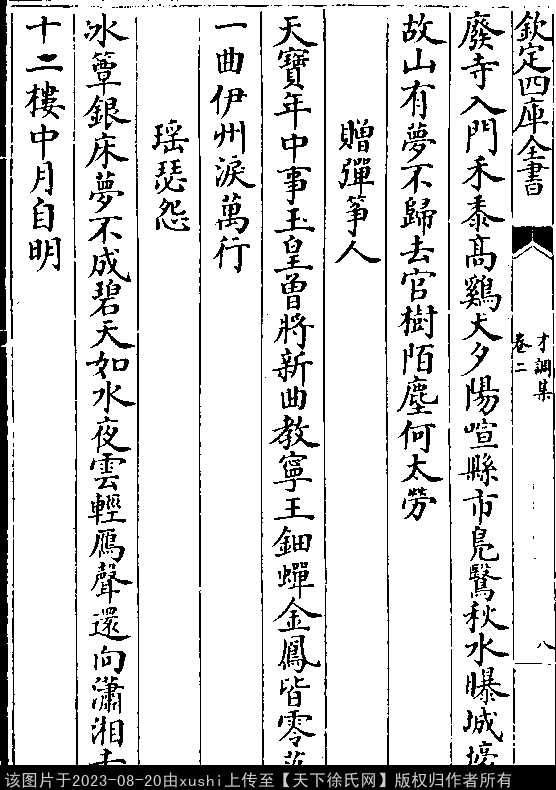 欽定四庫全書
才調集
卷二
八
廢寺入門禾黍高鷄犬夕陽喧縣市鳬鷖秋水曝城
故山有夢不歸去官樹陌塵何太勞
贈彈筝人
天寶年中事玉皇曽將新曲教寧王鈿蟬金鳳皆零
一曲伊州淚萬行
瑶瑟怨
冰簟銀床夢不成碧天如水夜雲輕鴈聲還向瀟湘
十二樓中月自明
该图片于2023-08-20由xushi上传至【天下徐氏网】版权归作者所有